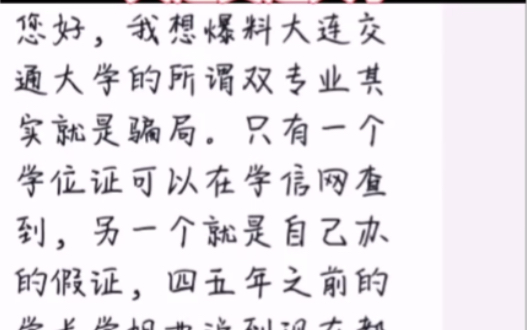 您好，我想爆料大连交
通大学的所谓双专业其
实就是骗局。只有一个
学位证可以在学信网查
到，另一个就是自己办
的假证，四五年之前的